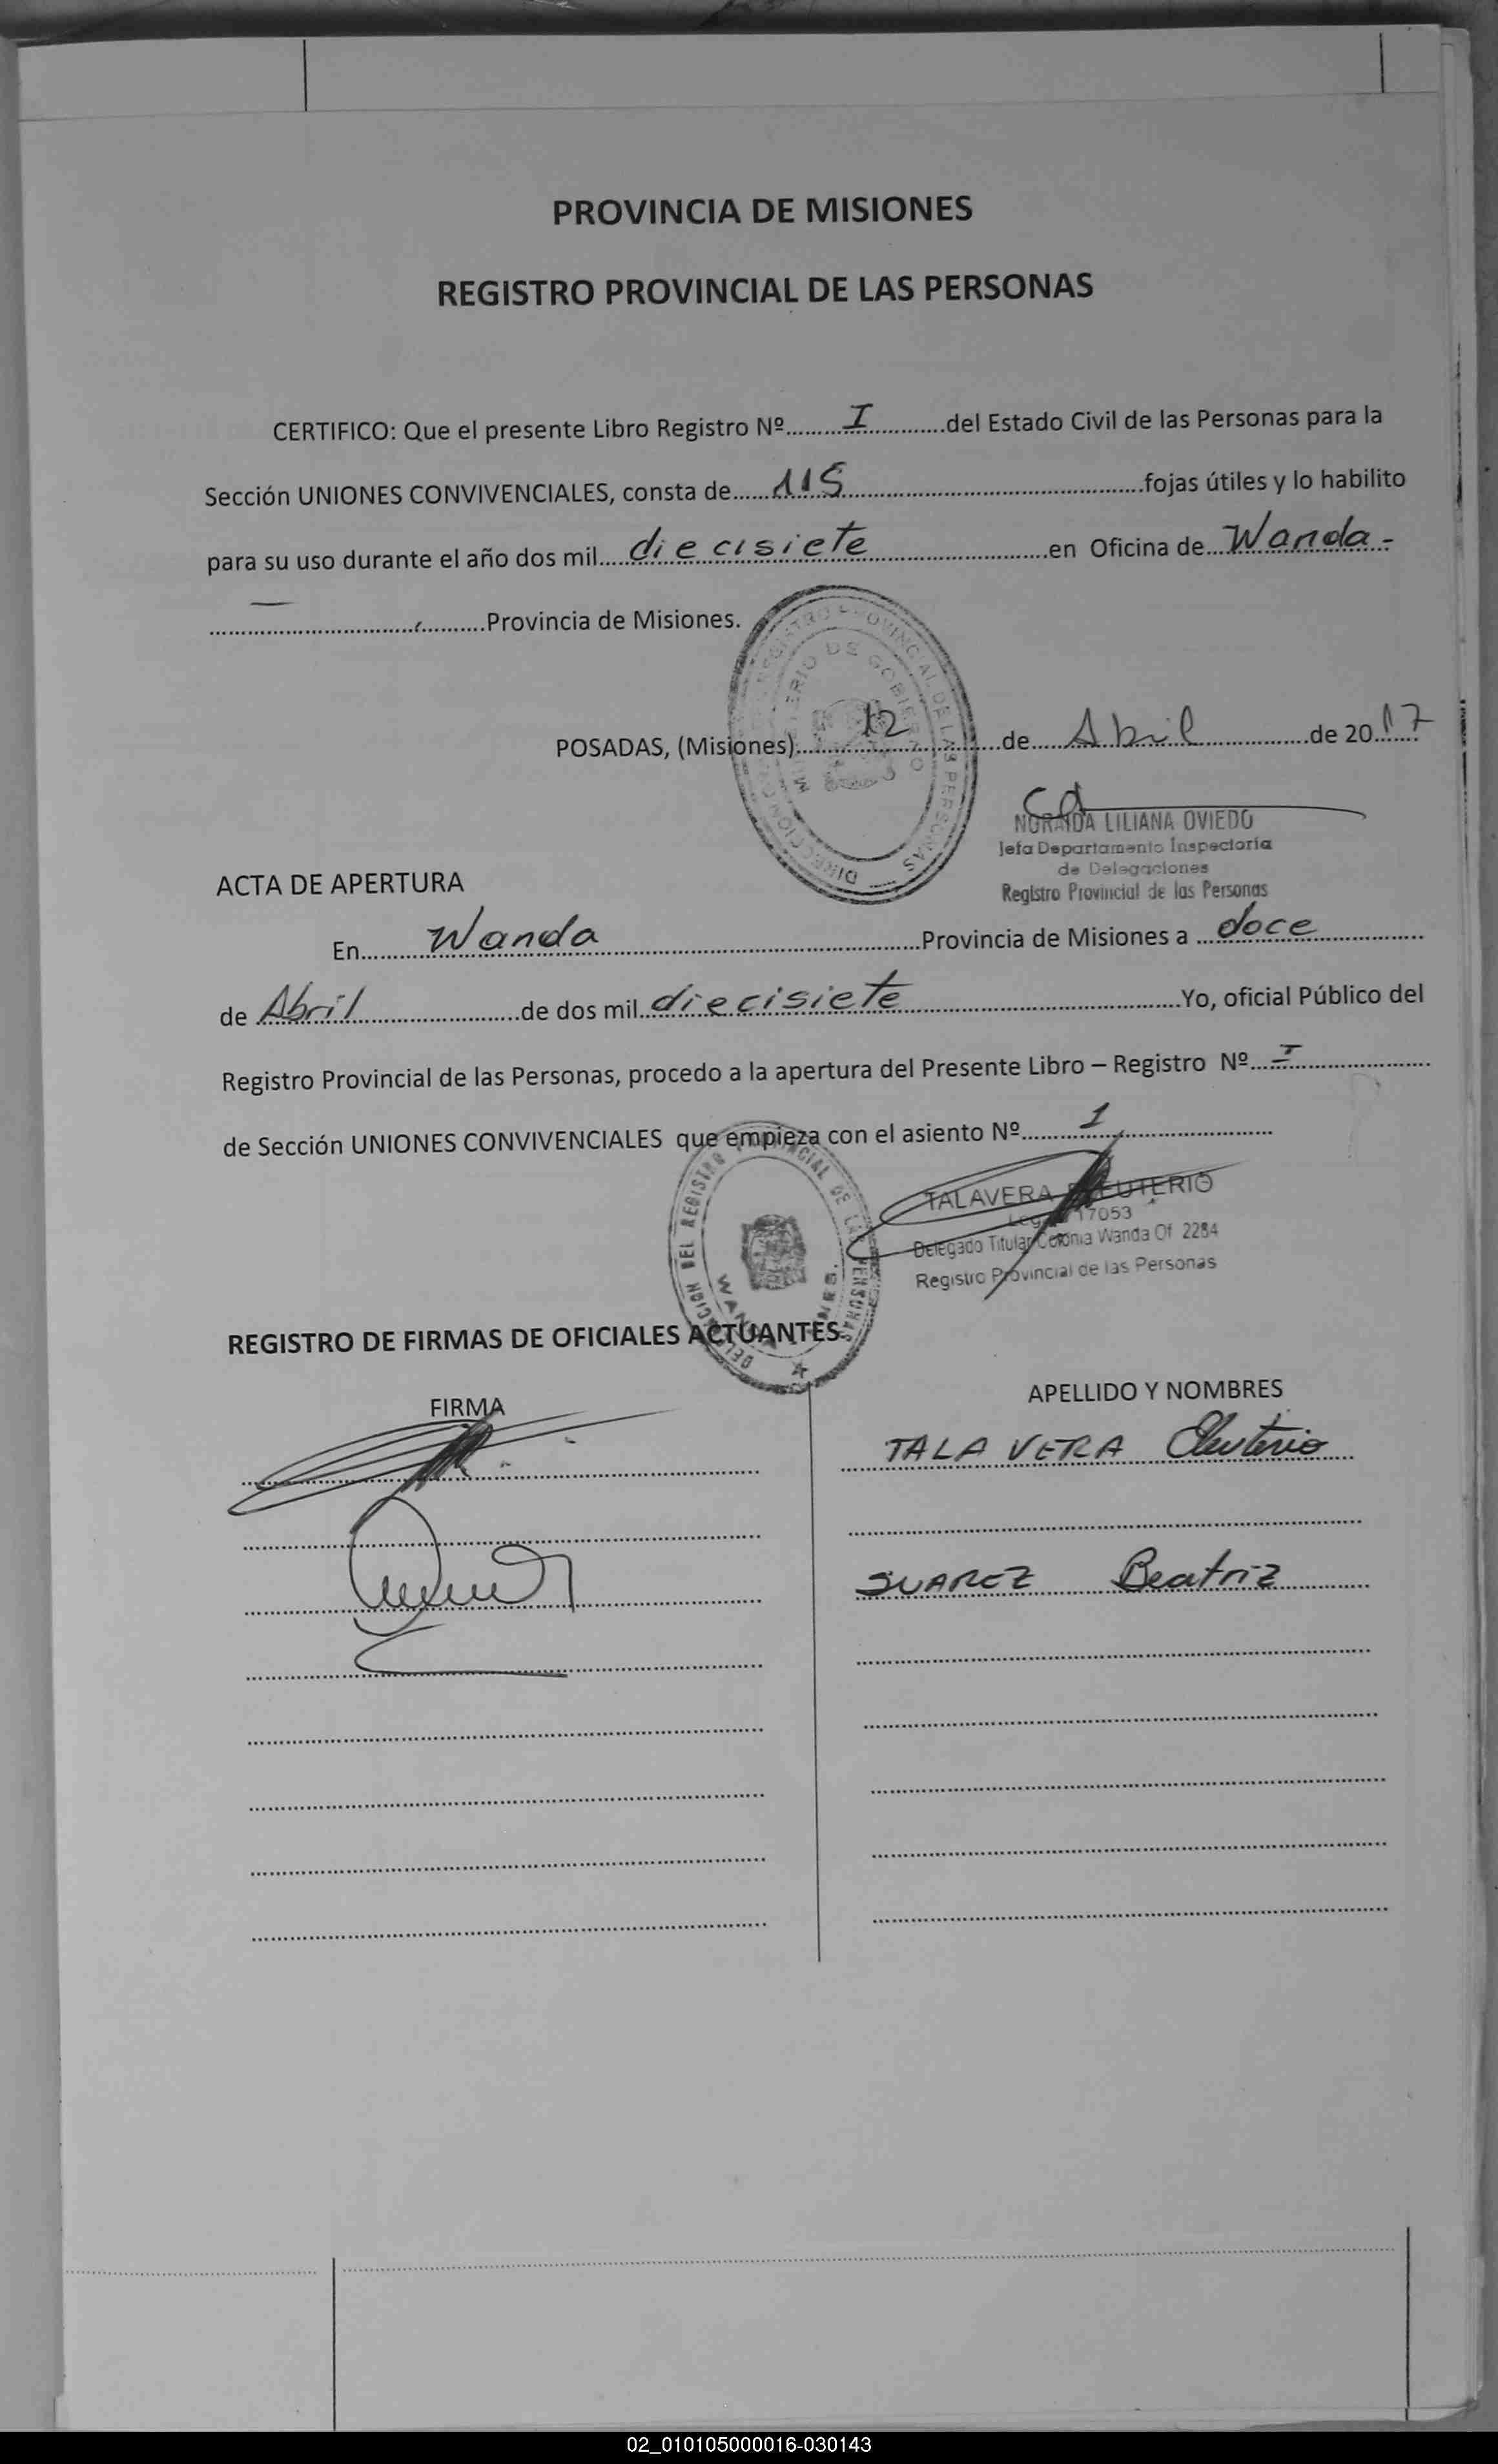 PROVINCIA DE MISIONES
REGISTRO PROVINCIAL DE LAS PERSONAS
CERTIFICO: Que el presente Libro Registro Nº.........I............del Estado Civil de las Personas para la
Sección UNIONES CONVIVENCIALES, consta de......115......fojas útiles y lo habilito
para su uso durante el año dos mil.....diecisiete......en Oficina de...Wanda.-
..........Provincia de Misiones.
DIRECCION REGISTRO PROVINCIAL DE LAS PERSONAS
MINISTERIO DE GOBIERNO
POSADAS, (Misiones)......12......de.....Abril......de 20.17
NORAIDA LILIANA OVIEDO
Jefa Departamento Inspectoria
de Delegaciones
Registro Provincial de las Personas
ACTA DE APERTURA
En......Wanda......Provincia de Misiones a ...doce......
de Abril......de dos mil..diecisiete......Yo, oficial Público del
Registro Provincial de las Personas, procedo a la apertura del Presente Libro – Registro Nº...I......
de Sección UNIONES CONVIVENCIALES que empieza con el asiento Nº......1......
TALAVERA ELEUTERIO
Leg. 17053
Delegado Titular Colonia Wanda Of 2284
Registro Provincial de las Personas
DELEGACION DEL REGISTRO PROVINCIAL DE LAS PERSONAS
WANDA
REGISTRO DE FIRMAS DE OFICIALES ACTUANTES
FIRMA
APELLIDO Y NOMBRES
TALAVERA Eleuterio
SUAREZ Beatriz
02_010105000016-030143